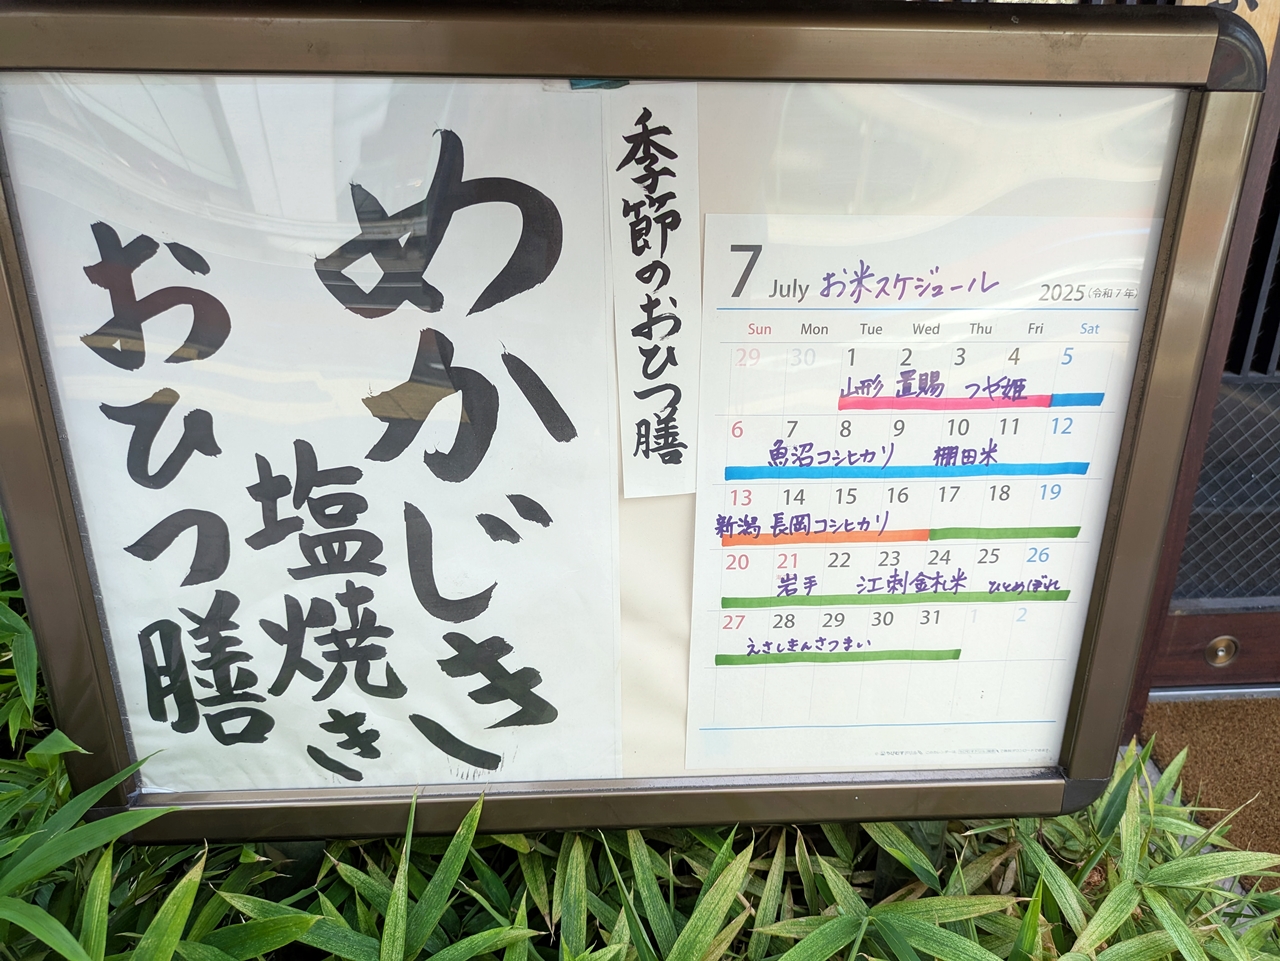 季節のおひつ膳
めかじき
塩焼き
おひつ膳
7 July お米スケジュール 2025(令和7年)
Sun Mon Tue Wed Thu Fri Sat
29 30 1 2 3 4 5
山形 置賜 つや姫
6 7 8 9 10 11 12
魚沼コシヒカリ 棚田米
13 14 15 16 17 18 19
新潟 長岡コシヒカリ
20 21 22 23 24 25 26
岩手 江刺金札米 ひとめぼれ
27 28 29 30 31 1 2
えさしきんさつまい